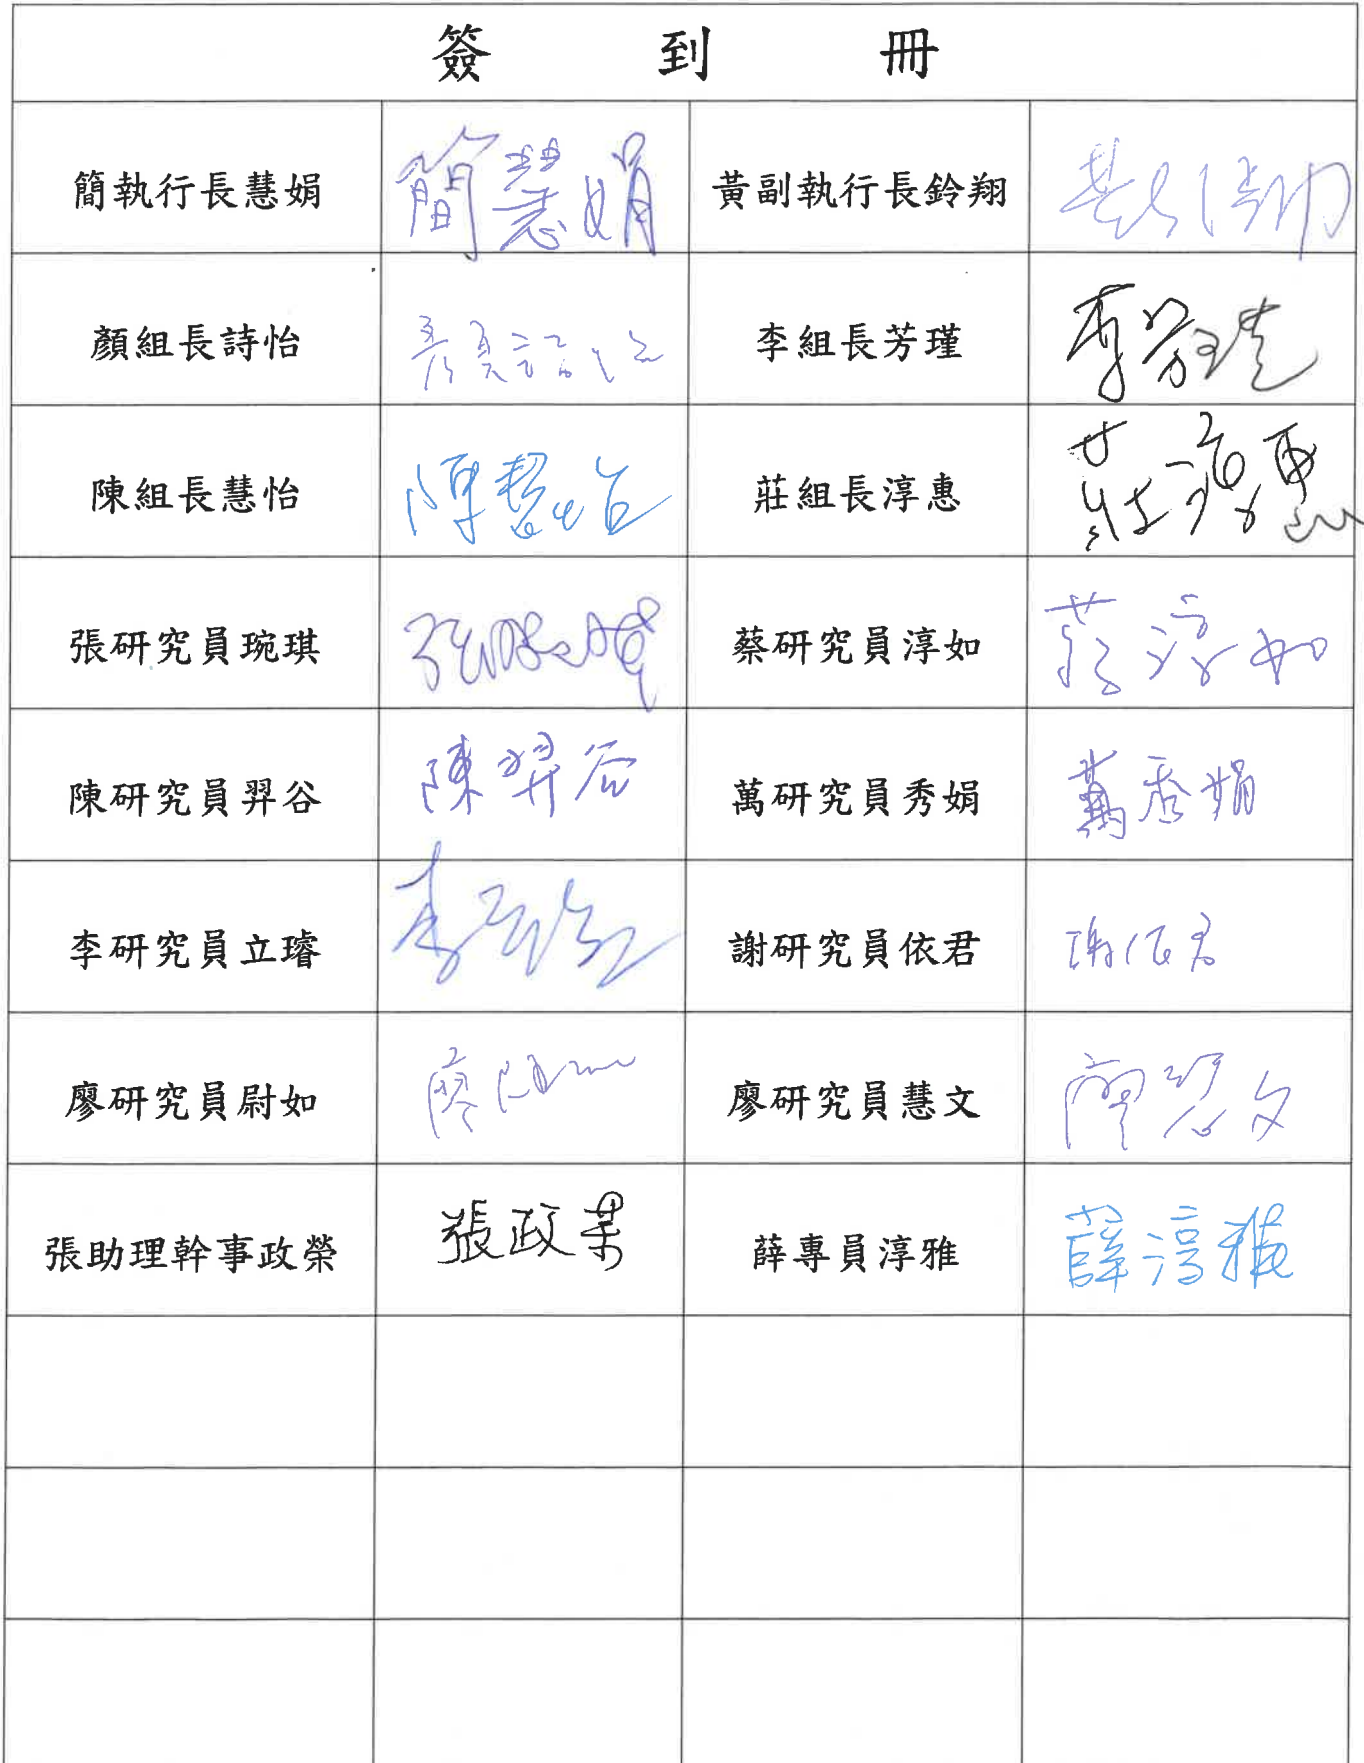 簽到冊
簡執行長慧娟 簡慧娟 黃副執行長鈴翔
顏組長詩怡 顏詩怡 李組長芳瑾 李芳瑾
陳組長慧怡 陳慧怡 莊組長淳惠 莊淳惠
張研究員琬琪 蔡研究員淳如 蔡淳如
陳研究員羿谷 陳羿谷 萬研究員秀娟 萬秀娟
李研究員立璿 謝研究員依君 謝依君
廖研究員尉如 廖研究員慧文 廖慧文
張助理幹事政榮 張政榮 薛專員淳雅 薛淳雅